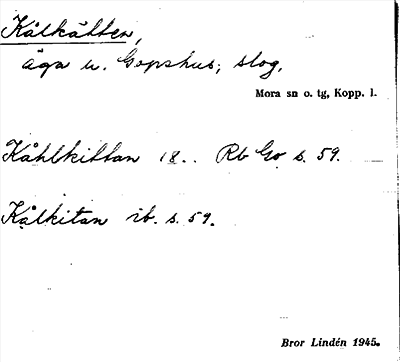 Kålkätten,
äga u. Gopshus; slog.
Mora sn o. tg, Kopp. l.
Kåhlkittan 18.. Rb Go s. 59.
Kålkitan ib. s. 59.
Bror Lindén 1945.